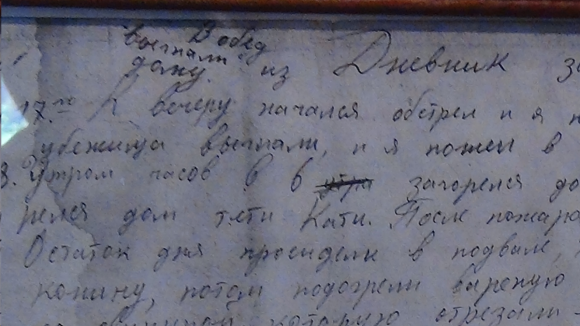 В обед
выгнали из
дому.
Дневник за
17.00 К вечеру начался обстрел и я
убежища выгнали, и я пошел в
8. Утром часов в 6 утра загорелся до
релся дом тети Кати. После пожара
Остаток дня просидели в подвале,
конину, потом подогрели вареную
которую отрезали